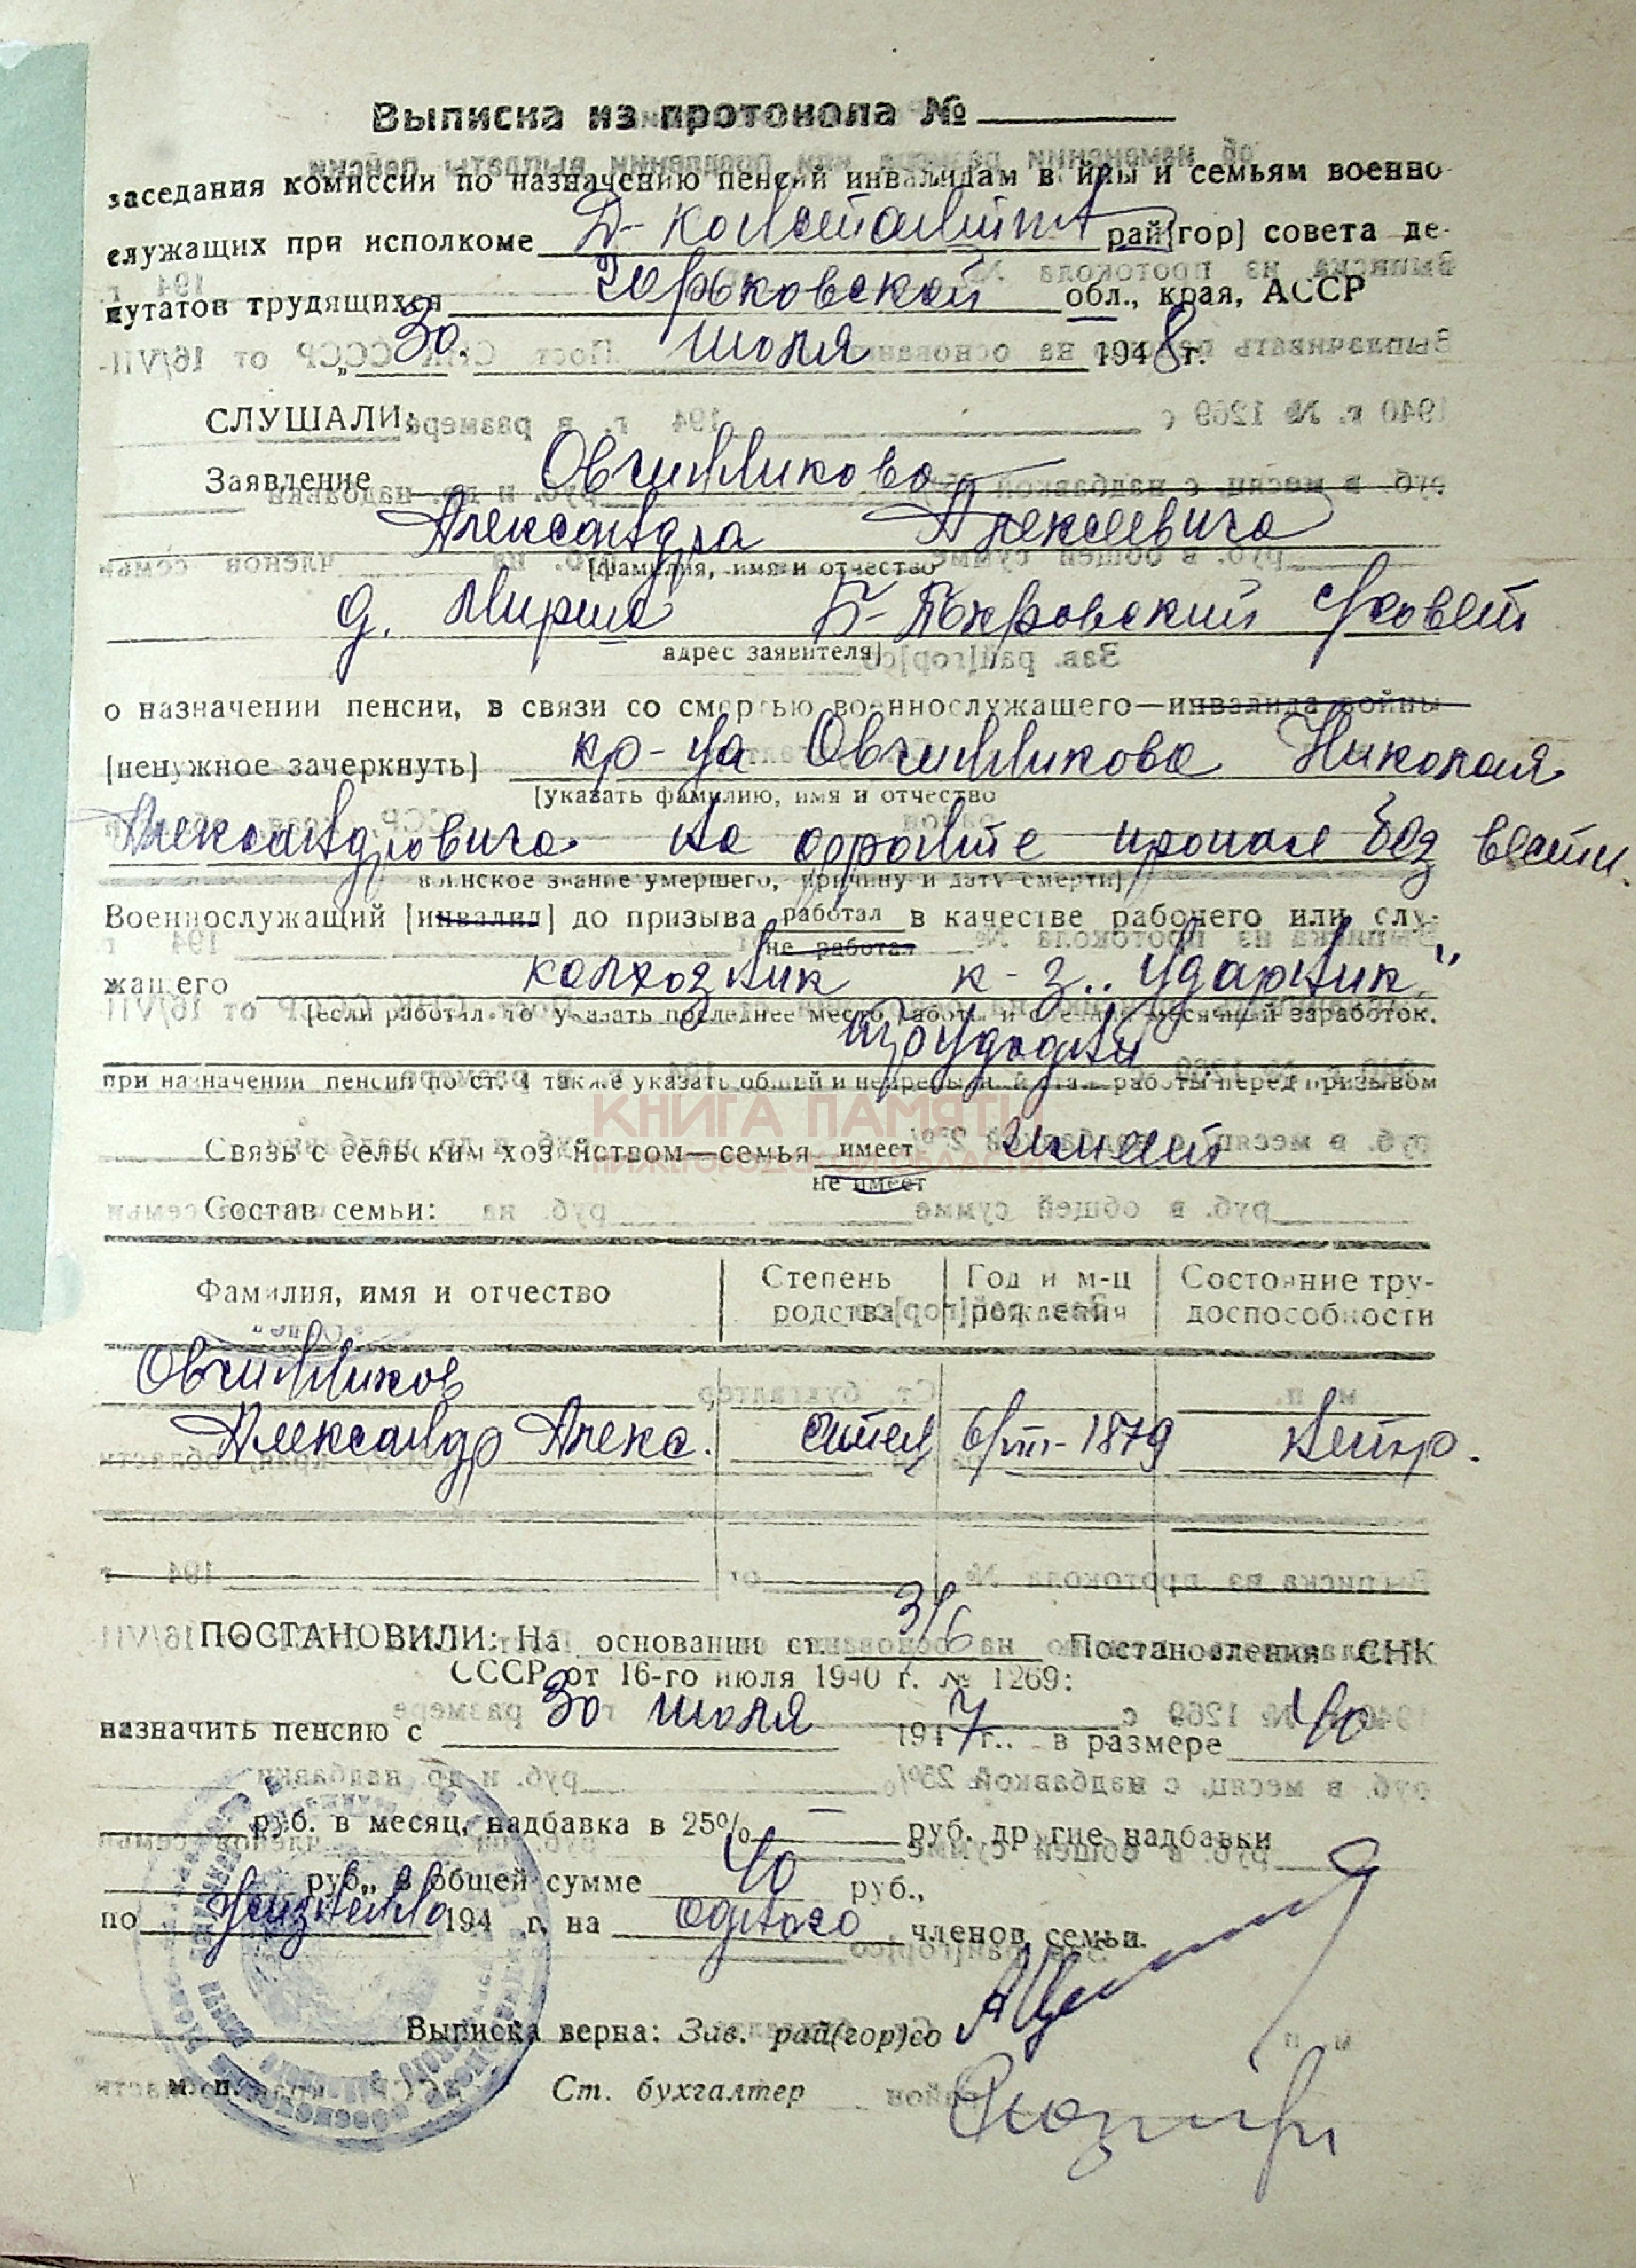 Выписка из протокола №
заседания комиссии по назначению пенсий инвалидам войны и семьям военно-
служащих при исполкоме Д-Константин рай[гор] совета де-
путатов трудящихся Горьковской обл., края, АССР
„30. июля 1948 г.
СЛУШАЛИ:
Заявление Овчинникова
Александра Алексеевича
[фамилия, имя и отчество
д. Мирша Б-Покровский с/совет
адрес заявителя]
о назначении пенсии, в связи со смертью военнослужащего—инвалида войны
[ненужное зачеркнуть] кр-ца Овчинникова Николая
[указать фамилию, имя и отчество
Александровича на фронте пропал без вести.
воинское звание умершего, причину и дату смерти]
Военнослужащий [инвалид] до призыва работал в качестве рабочего или слу-
не работал
жащего колхозник к-з „Ударник"
[если работал, то указать последнее место работы и средне-месячный заработок,
трудодни
при назначении пенсии по ст. 4 также указать общий и непрерывный стаж работы перед призывом
КНИГА ПАМЯТИ
Связь с сельским хозяйством—семья имеет имеет
НИЖЕГОРОДСКОЙ ОБЛАСТИ
не имеет
Состав семьи:
Фамилия, имя и отчество Степень родства Год и м-ц рождения Состояние тру-доспособности
Овчинников
Александр Алекс. отец 6/VIII-1879 нетр.
ПОСТАНОВИЛИ: На основании ст. 3/6 Постановления СНК
СССР от 16-го июля 1940 г. № 1269:
назначить пенсию с 30 июля 1947 г.. в размере 40
руб. в месяц, надбавка в 25% — руб. другие надбавки
руб., в общей сумме 40 руб.,
по пожизненно 194 г. на одного членов семьи.
Выписка верна: Зав. рай(гор)со
м. п. Ст. бухгалтер